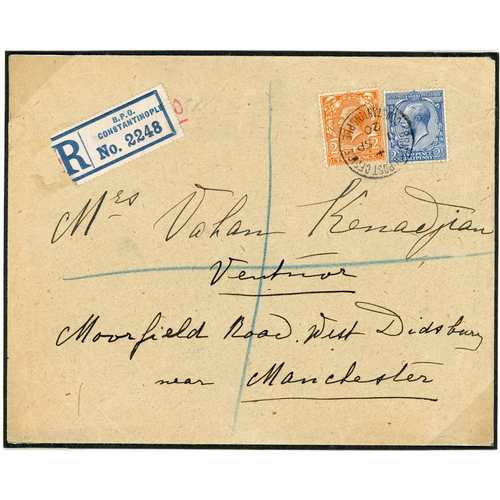 B.P.O.
CONSTANTINOPLE
R No. 2248
POST OFFICE
CONSTANTINOPLE
20 SP
Mrs Vahan Kenadjian
Ventnor
Moorfield Road. West Didsbury
near Manchester